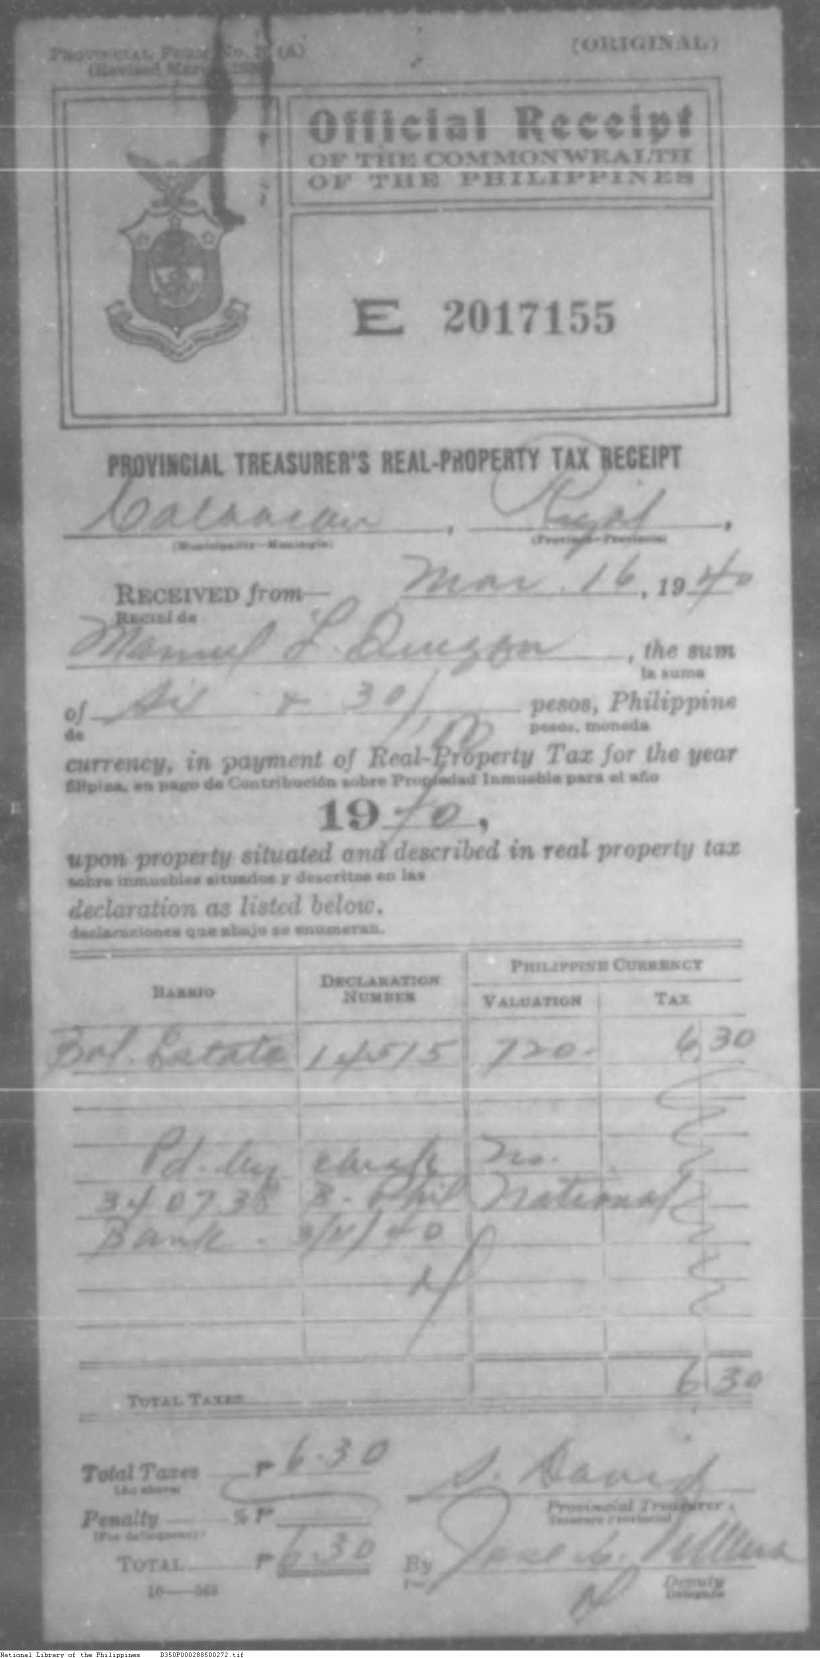 PROVINCIAL FORM No.
(ORIGINAL)
Official Receipt
OF THE COMMONWEALTH
OF THE PHILIPPINES
E 2017155
PROVINCIAL TREASURER'S REAL-PROPERTY TAX RECEIPT
Caloocan, Rizal,
(Municipality—Municipio) (Province—Provincia)
RECEIVED from— Mar. 16, 1940
Recibí de
Manuel L. Quezon, the sum
la suma
of Six & 30/100 pesos, Philippine
de pesos, moneda
currency, in payment of Real-Property Tax for the year
filipina, en pago de Contribución sobre Propiedad Inmueble para el año
1940,
upon property situated and described in real property tax
sobre inmuebles situados y descritos en las
declaration as listed below.
declaraciones que abajo se enumeran.
BARRIO DECLARATION NUMBER PHILIPPINE CURRENCY
VALUATION TAX
Bal. Estate 14515 720.- 6 30
Pd. by check No.
340738 B. Phil National
Bank - 3/ /40
TOTAL TAXES 6 30
Total Taxes ₱ 6.30
(As above)
S. David
Provincial Treasurer
Tesorero Provincial
Penalty % ₱
(For delinquency)
TOTAL ₱ 6.30
By Jose
Deputy
Delegado
National Library of the Philippines B350P000288600272.tif